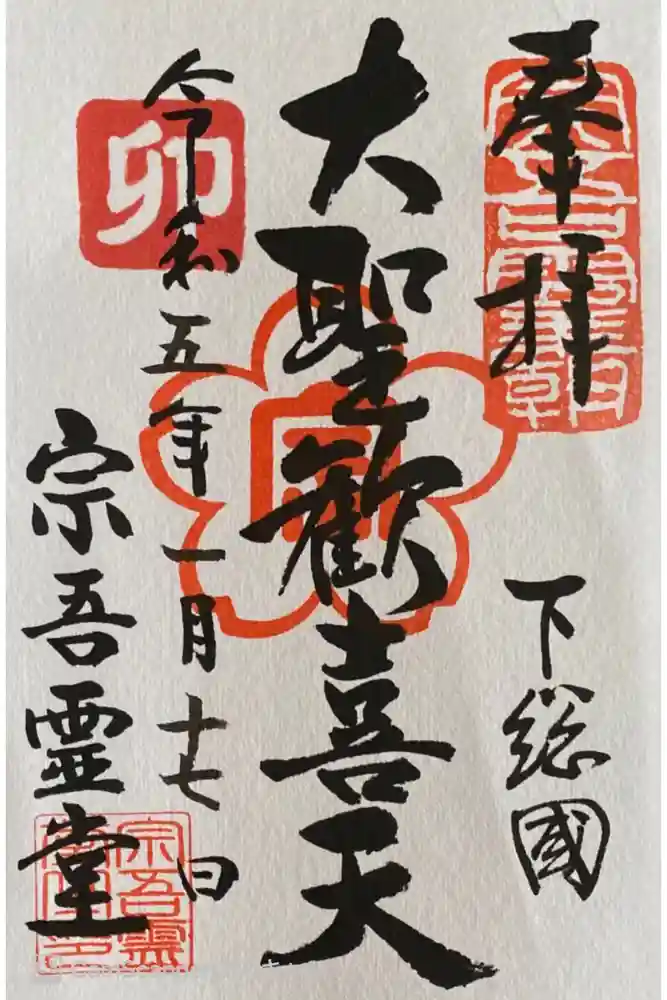 奉拝
下総國
大聖歓喜天
令和五年一月十七日
宗吾霊堂
卯
宗吾霊